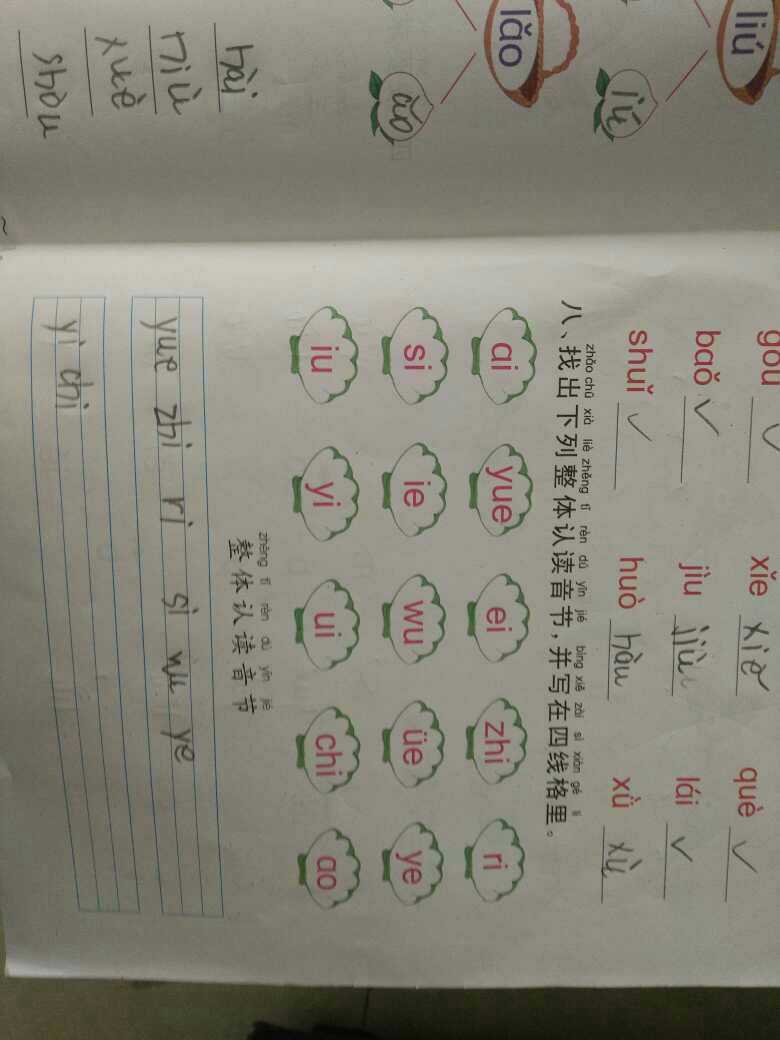 liú
iú
lǎo
ǎo
hài
niù
xuè
shòu
✓ xǐe xiě què ✓
baǒ ✓ jìu jiù lái ✓
shuǐ ✓ huò hàu xǜ xù
zhǎo chū xià liè zhěng tǐ rèn dú yīn jié bìng xiě zài sì xiàn gé lǐ
八、找出下列整体认读音节，并写在四线格里。
ai yue ei zhi ri
si ie wu üe ye
iu yi ui chi ao
zhěng tǐ rèn dú yīn jié
整体认读音节
yue zhi ri si wu ye
yi chi